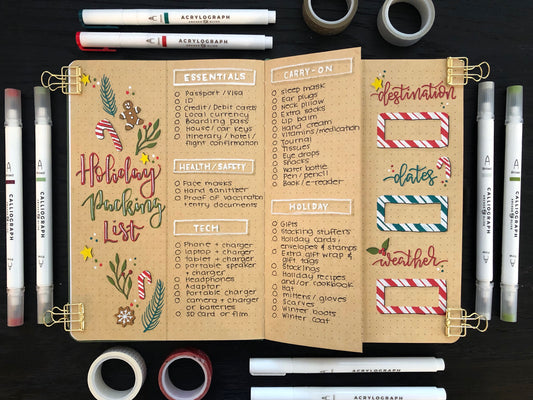 ACRYLOGRAPH
ACRYLOGRAPH
Holiday
Packing
List
ESSENTIALS
Passport/Visa
ID
Credit/Debit cards
Local currency
Boarding pass
House/car keys
Itinerary/hotel/
flight confirmation
HEALTH/SAFETY
Face masks
Hand sanitizer
Proof of vaccination
+ entry documents
TECH
Phone + charger
laptop + charger
tablet + charger
portable speaker
+ charger
Headphones
Adaptor
Portable charger
camera + charger
or batteries
SD card or film
CARRY-ON
sleep mask
Ear plugs
Neck pillow
Extra socks
Lip balm
Hand cream
Vitamins/medication
Journal
Tissues
Eye drops
Snacks
water bottle
Pen/pencil
Book/e-reader
HOLIDAY
Gifts
Stocking stuffers
Holiday cards,
envelopes & stamps
Extra gift wrap &
gift tags
Stockings
Holiday recipes
and/or cookbook
Hat
mittens/gloves
Scarves
Winter boots
Winter coat
destination
dates
weather
CALLIOGRAPH
CALLIOGRAPH
CALLIOGRAPH
CALLIOGRAPH
ACRYLOGRAPH
ACRYLOGRAPH